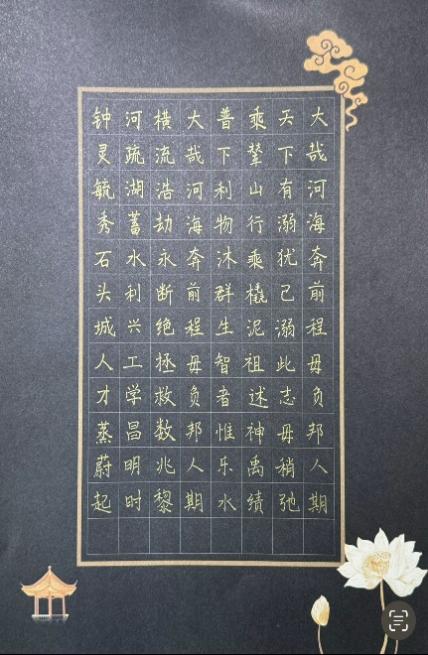 大哉河海奔前程毋负邦人期
天下有溺犹己溺此志毋稍弛
乘辇山行乘橇泥祖述神禹绩
普下利物沐群生智者惟乐水
大哉河海奔前程毋负邦人期
横流浩劫永断绝拯救数兆黎
河疏湖蓄水利兴工学昌明时
钟灵毓秀石头城人才蒸蔚起